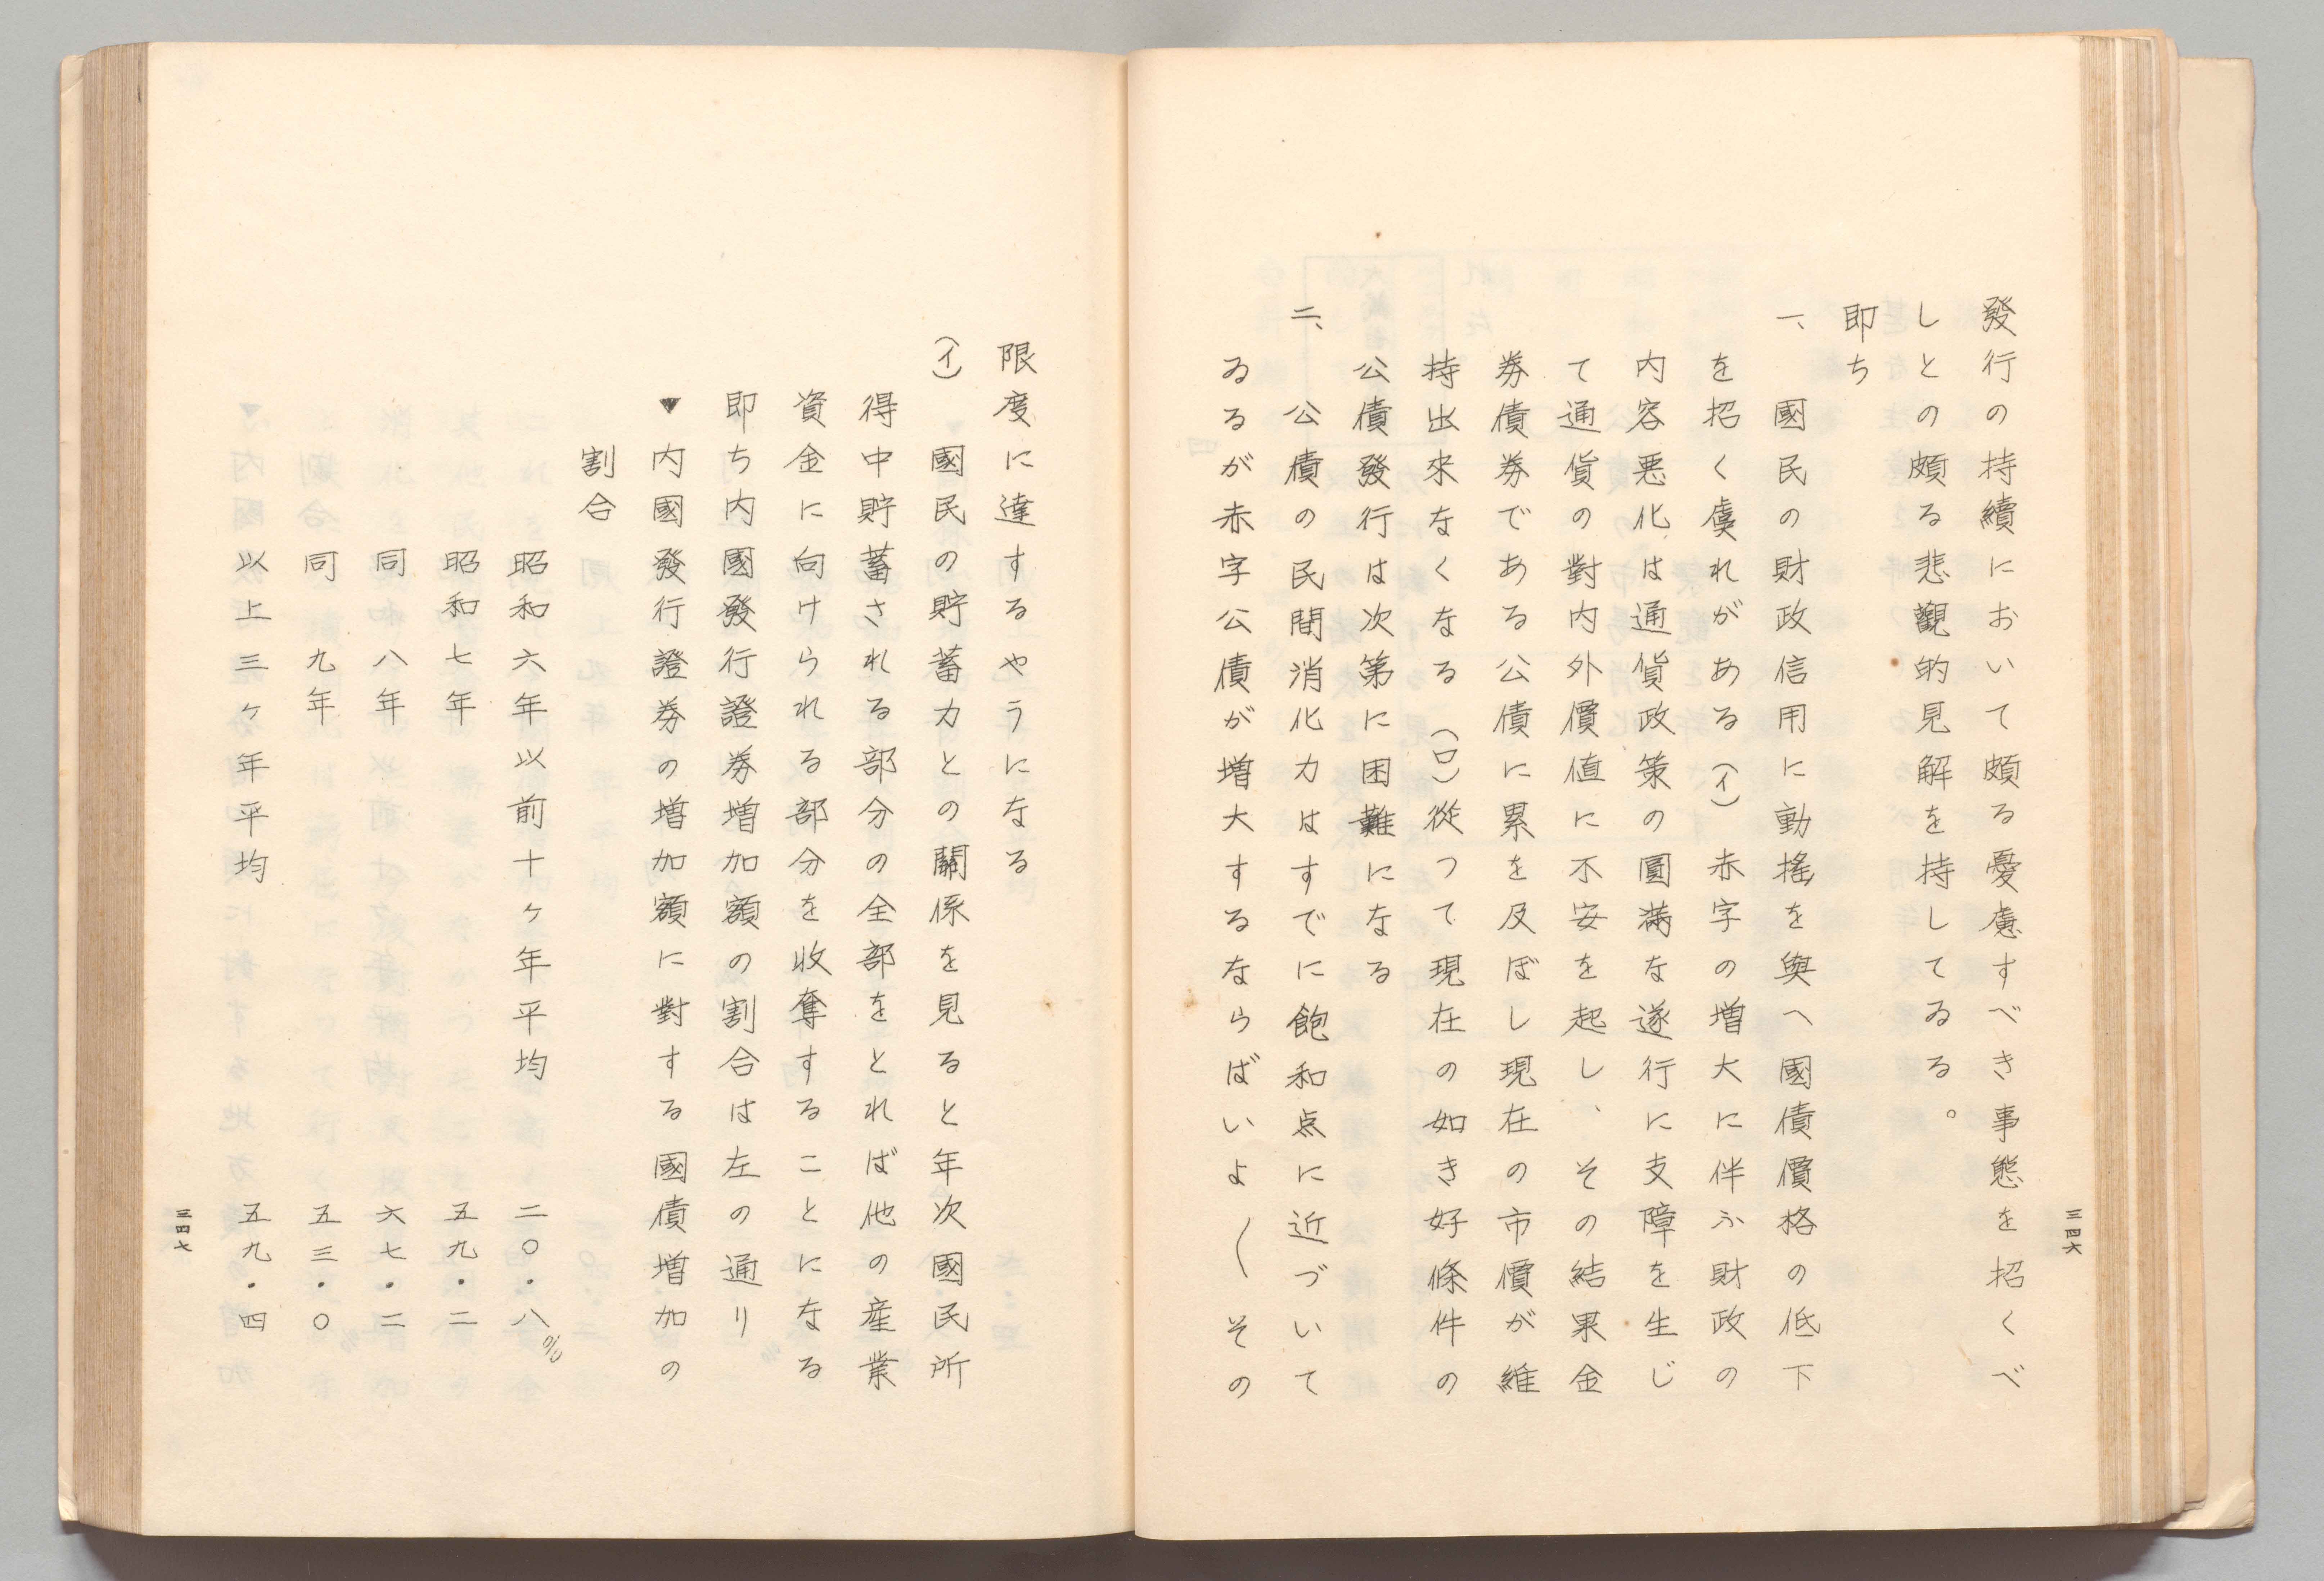 發行の持續において頗る憂慮すべき事態を招くべ
しとの頗る悲觀的見解を持してゐる。
即ち
一、國民の財政信用に動搖を與へ國債價格の低下
を招く虞れがある（イ）赤字の増大に伴ふ財政の
内容悪化は通貨政策の圓滿な遂行に支障を生じ
て通貨の對内外價値に不安を起し、その結果金
券債券である公債に累を及ぼし現在の市價が維
持出來なくなる（ロ）從つて現在の如き好條件の
公債發行は次第に困難になる
二、公債の民間消化力はすでに飽和点に近づいて
ゐるが赤字公債が増大するならばいよ〱その
三四六
限度に達するやうになる
（イ）國民の貯蓄力との關係を見ると年次國民所
得中貯蓄される部分の全部をとれば他の産業
資金に向けられる部分を收奪することになる
即ち内國發行證券増加額の割合は左の通り
▼内國發行證券の増加額に對する國債増加の
割合
昭和六年以前十ヶ年平均 二〇・八%
昭和七年 五九・二
同八年 六七・二
同九年 五三・〇
以上三ヶ年平均 五九・四
三四七